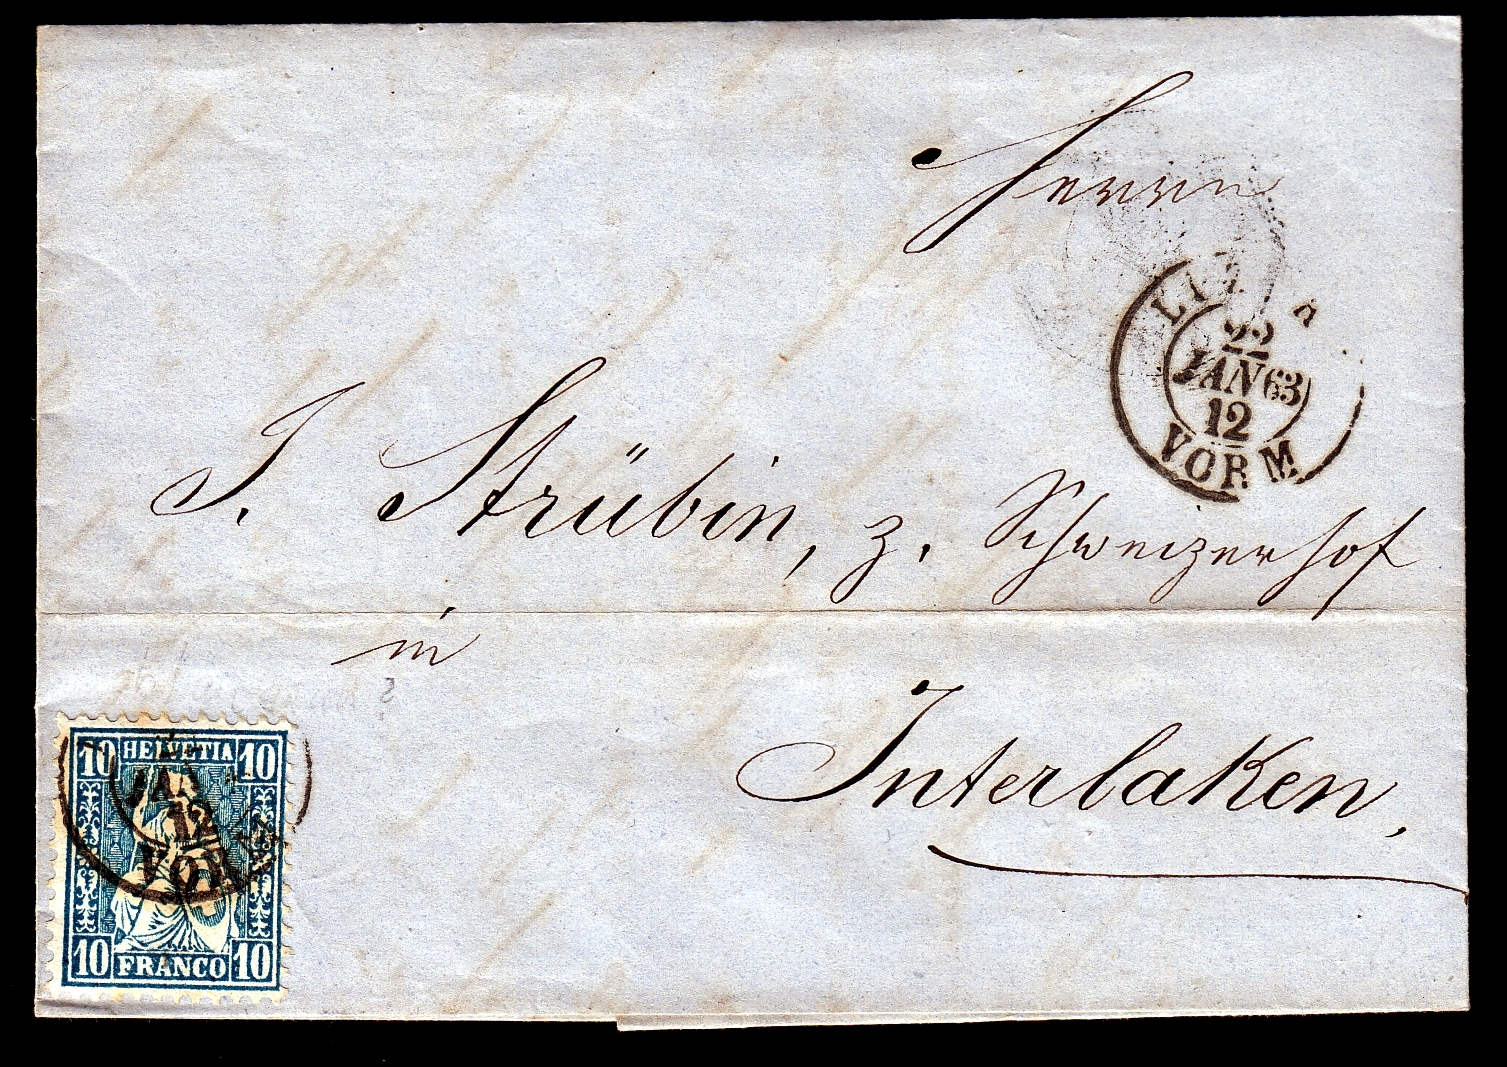 Herrn
22
JAN 63
12
VORM
J. Strübin, z. Schweizerhof
in
Interlaken,
10 HELVETIA 10
JAN
12
VORM
10 FRANCO 10